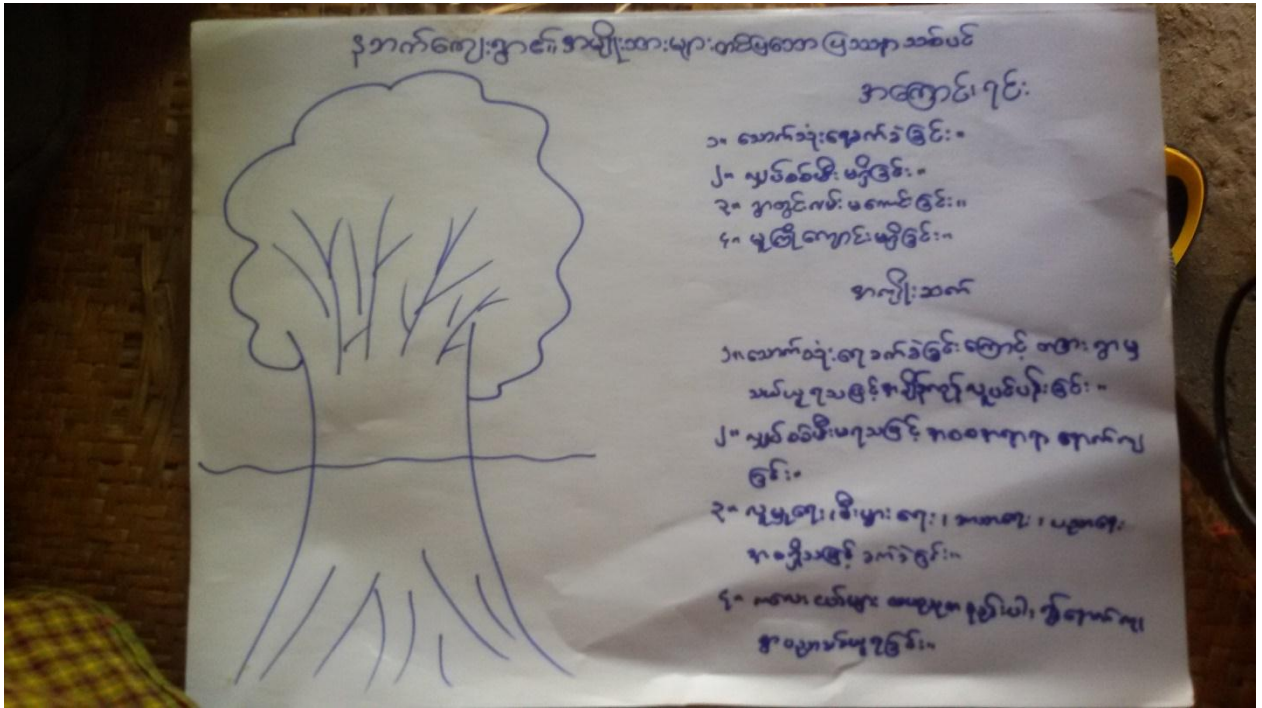 နဘက်ကျေးရွာ၏ အမျိုးသားများ တင်ပြသော ပြဿနာ သစ်ပင်
အကြောင်းရင်း
၁။ သောက်သုံးရေခက်ခဲခြင်း။
၂။ လျှပ်စစ်မီး မရှိခြင်း။
၃။ ရွာတွင်းလမ်း မကောင်းခြင်း။
၄။ မူကြိုကျောင်းမရှိခြင်း။
အကျိုးဆက်
၁။ သောက်သုံးရေခက်ခဲခြင်းကြောင့် တခြားရွာမှ
သယ်ယူရသဖြင့် အချိန်ကုန်လူပင်ပန်းခြင်း။
၂။ လျှပ်စစ်မီးမရသဖြင့် အစစအရာရာ နောက်ကျ
ခြင်း။
၃။ လူမှုရေး၊ စီးပွားရေး၊ ပညာရေး
ခက်ခဲခြင်း။
၄။ ကလေးငယ်များ